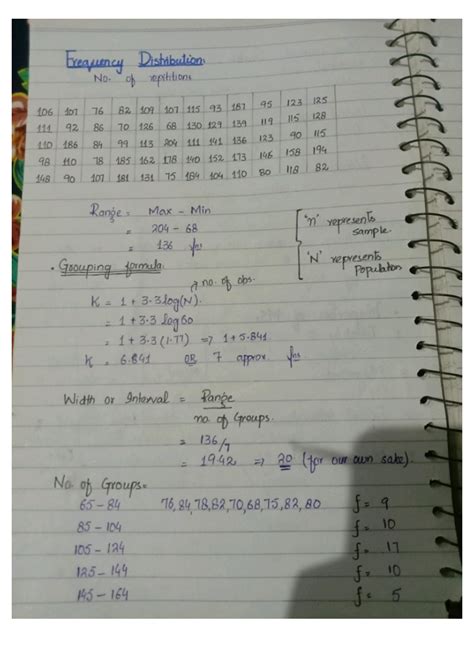 Frequency Distribution
No. of repitition
106 107 76 82 109 107 115 93 187 95 123 125
111 92 86 70 126 68 130 129 139 119 115 128
110 186 84 99 113 204 111 141 136 123 90 115
98 110 78 185 162 178 140 152 173 146 158 194
148 90 107 181 131 75 184 104 110 80 118 82
Range = Max - Min
= 204 - 68
= 136 Ans
'n' represents
sample.
'N' represents
Population
• Grouping formula.
→ no. of obs.
K = 1 + 3.3 log(N).
= 1 + 3.3 log 60
= 1 + 3.3 (1.77) => 1 + 5.841
K = 6.841 OR 7 approx. Ans
Width or Interval = Range
no. of Groups.
= 136/7
= 19.42 => 20 (for our own sake).
No. of Groups=
65 - 84 76,84,78,82,70,68,75,82,80 f = 9
85 - 104 f = 10
105 - 124 f = 17
125 - 144 f = 10
145 - 164 f = 5